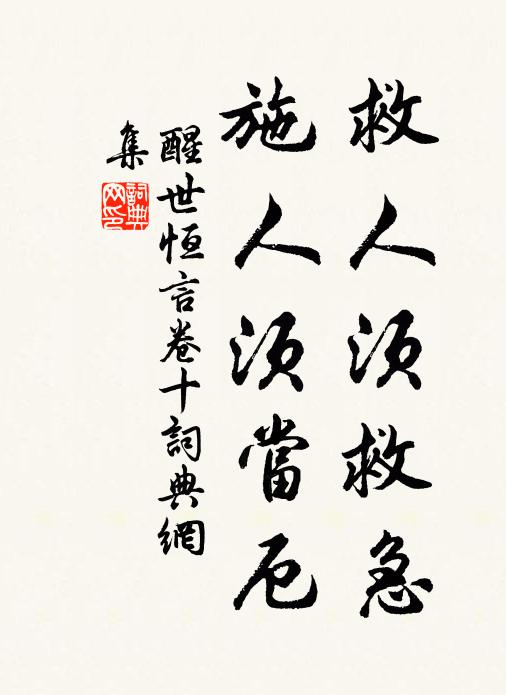 救人須救急
施人須當厄
醒世恒言卷十詞典網
集
詞典
网印